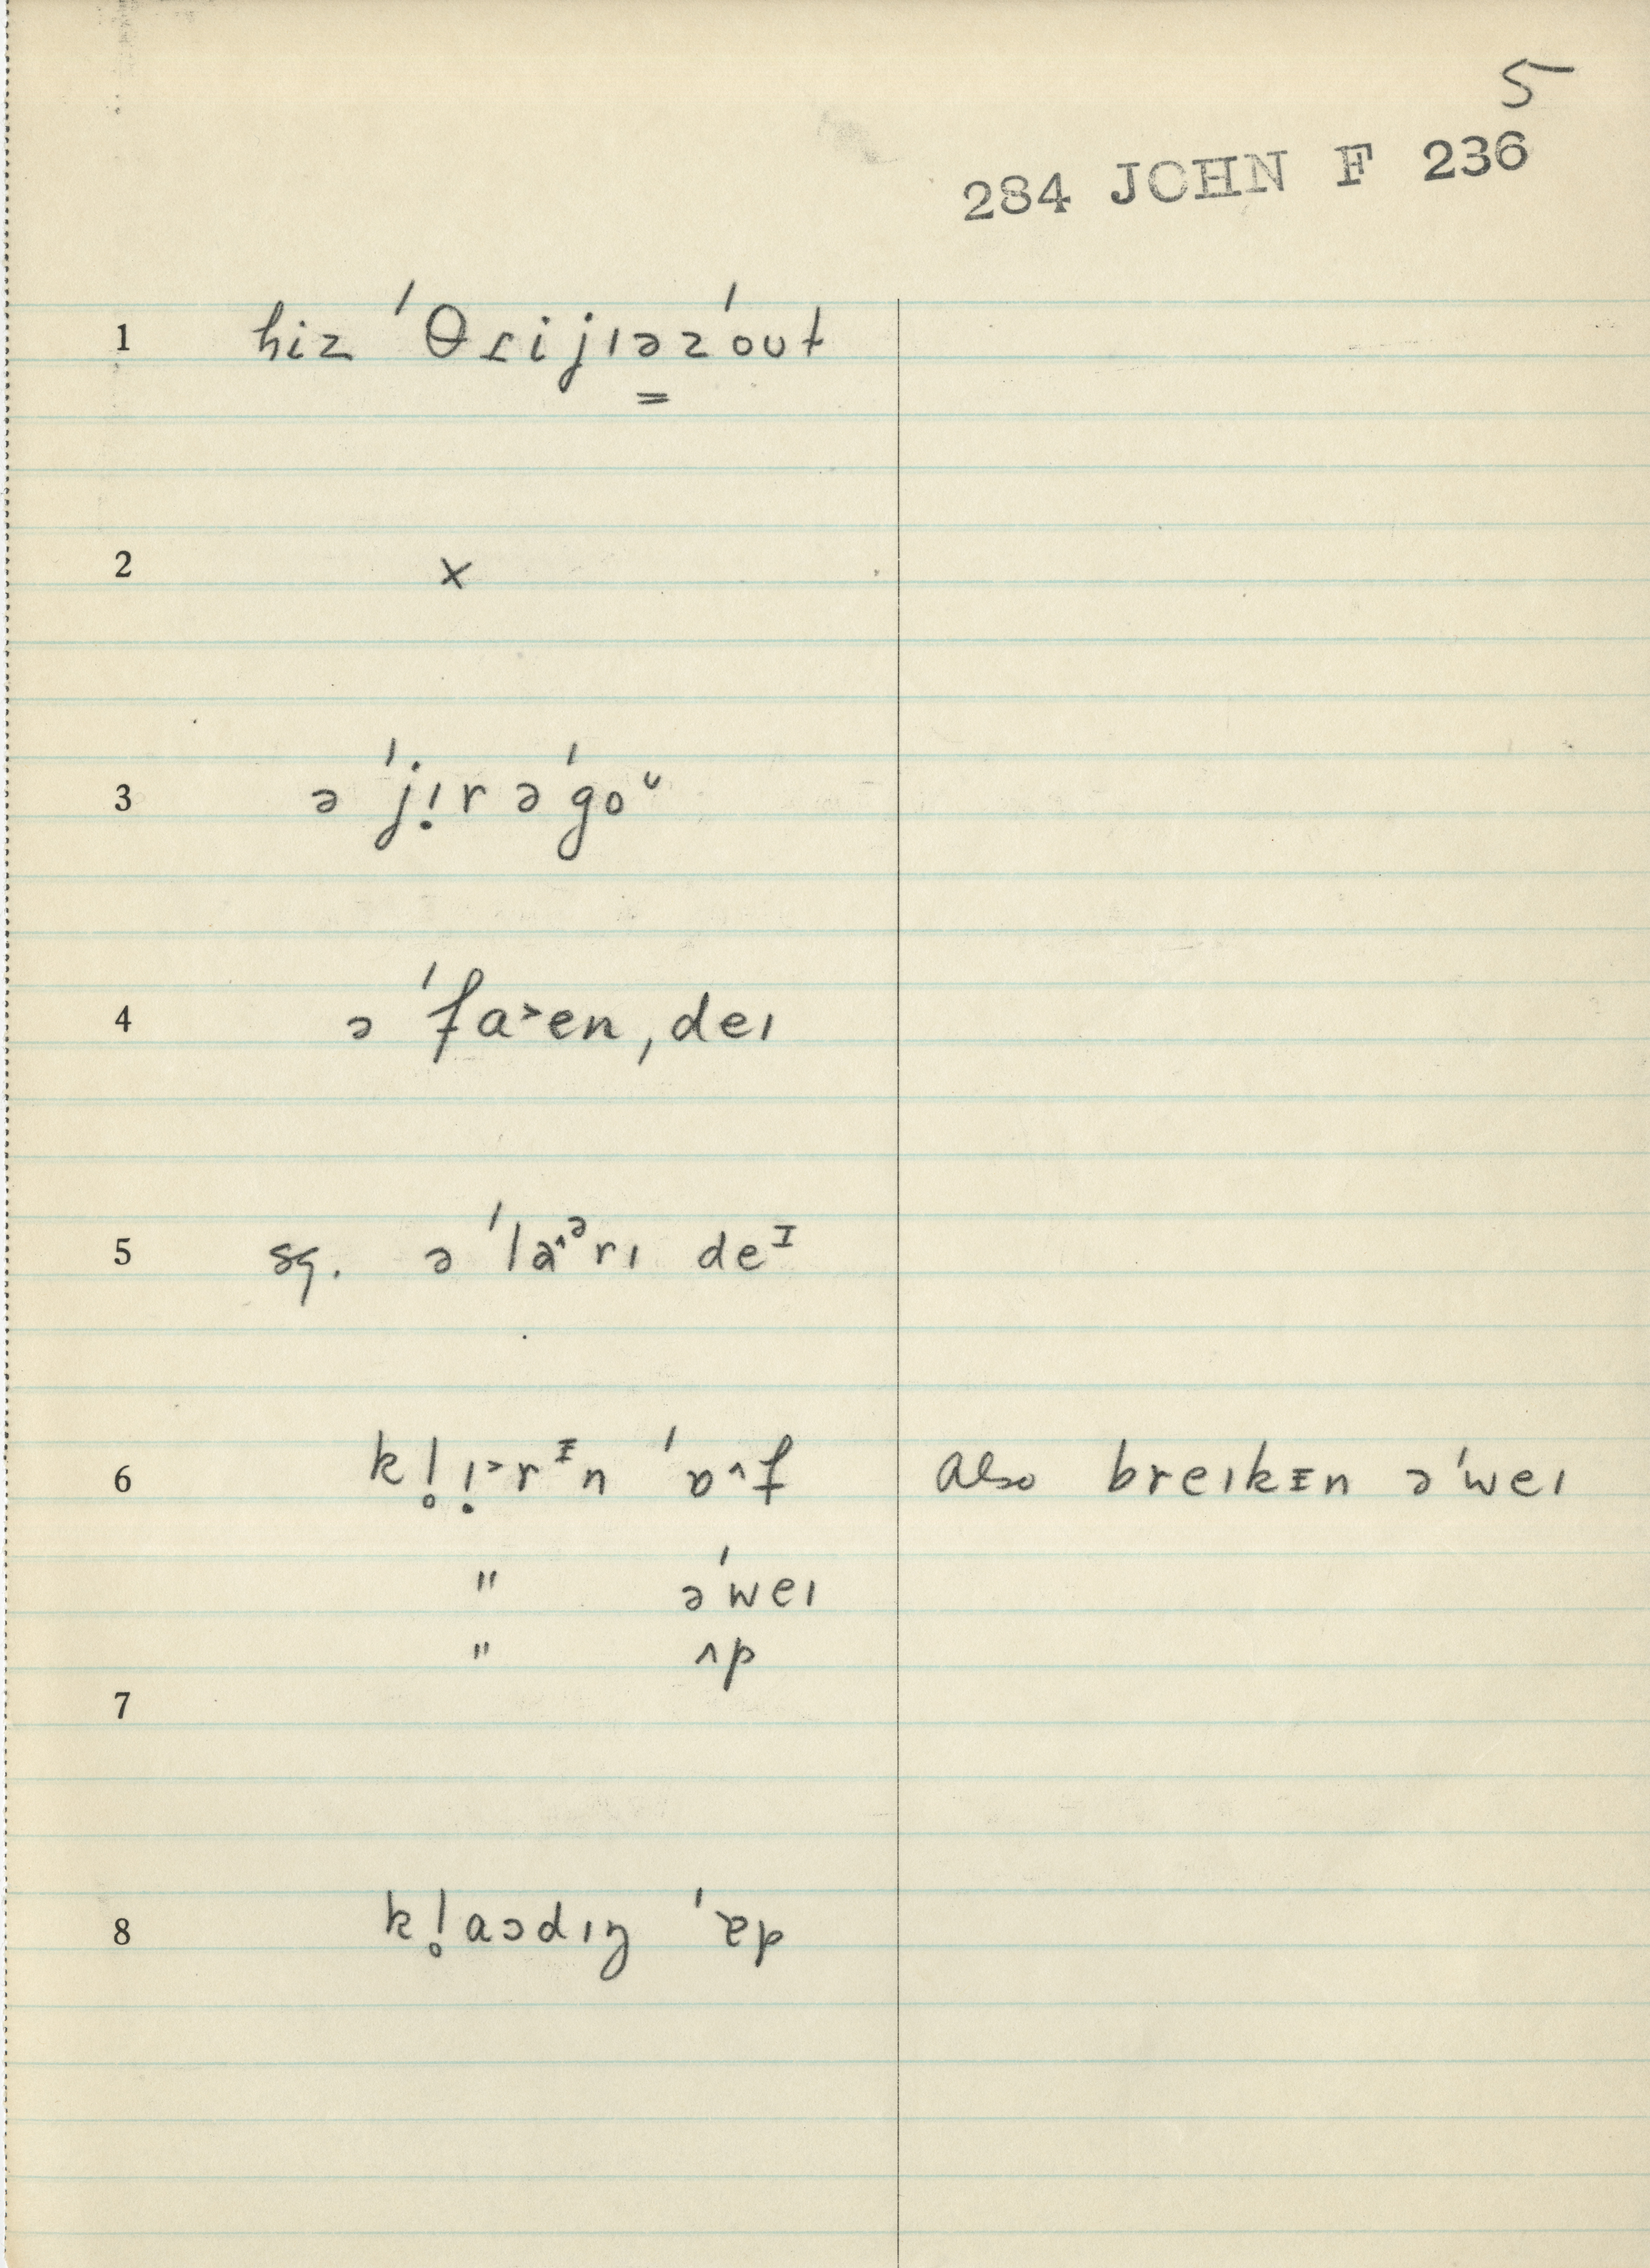 5
284 JOHN F 236
1 hiz ˈθɾijɪəzˈoʊt
2 x
3 ə ˈjịr əˈgoᶷ
4 ə ˈfa˃en ˌdeɪ
5 sg. ə ˈla^ᵊrɪ deᴵ
6 kl̥ị˃rᵻn ˈɒ^f also breɪkᵻn əˈweɪ
" əˈweɪ
" ʌp
7
8 kl̥aɔdɪŋ ˈɐp